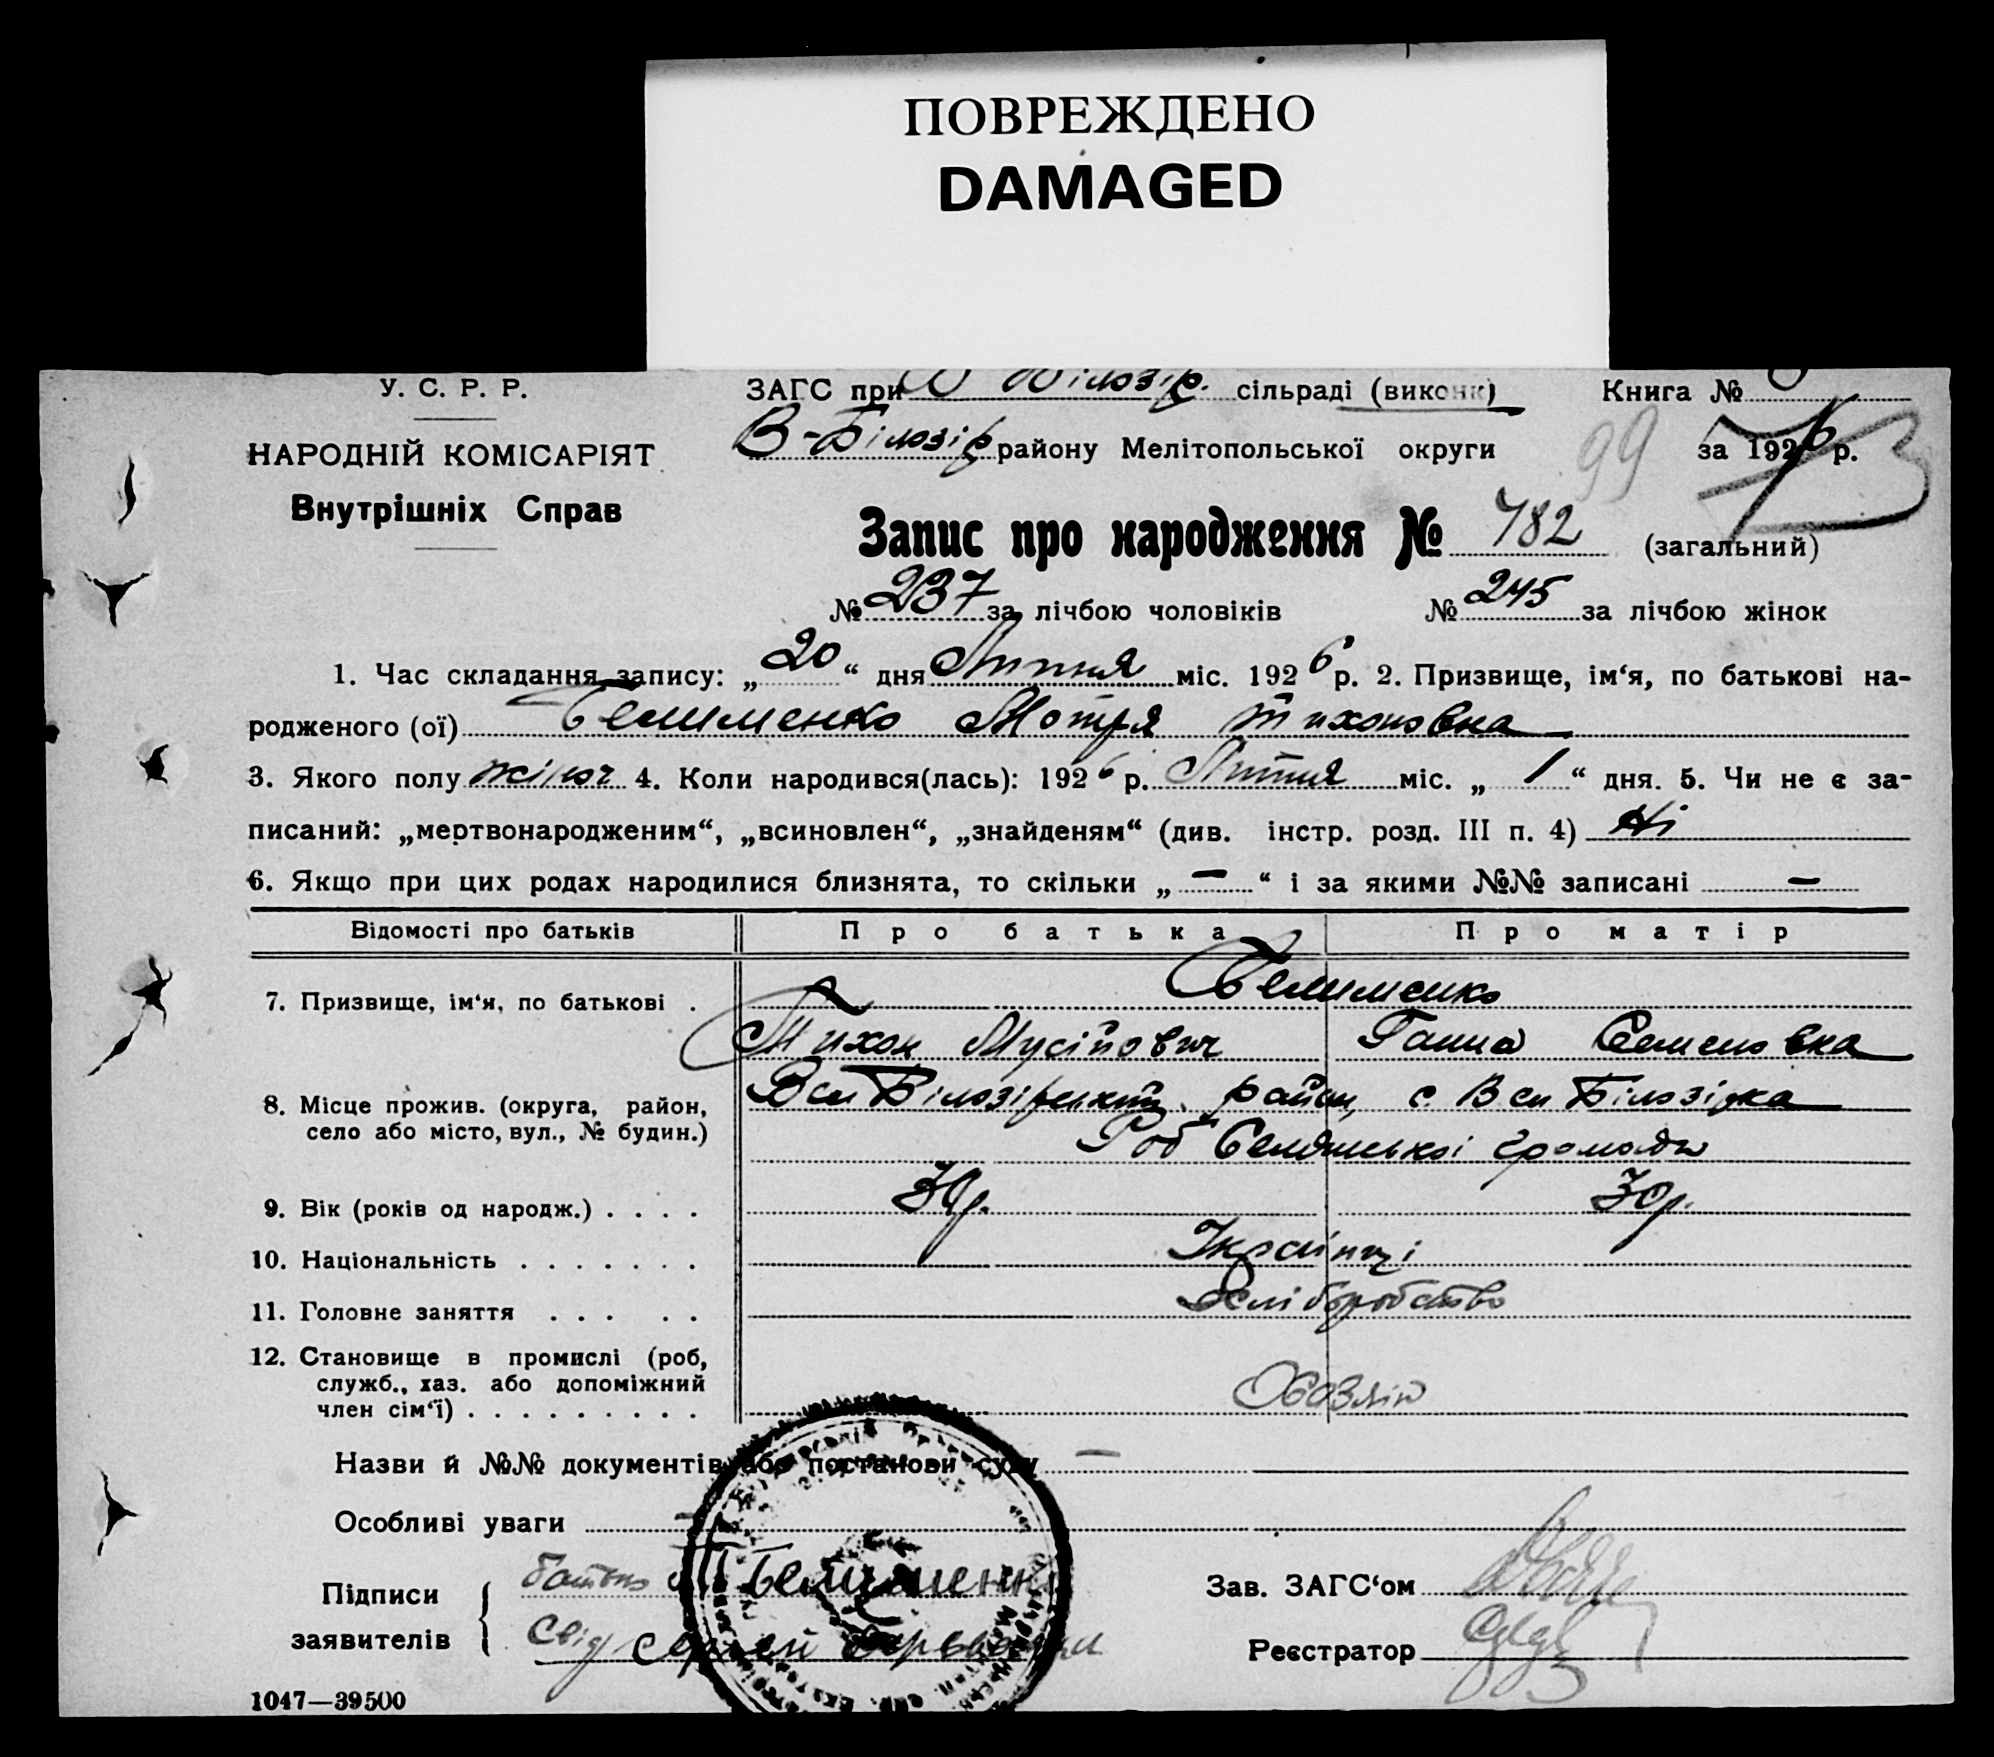 ПОВРЕЖДЕНО
DAMAGED
У. С. Р. Р.
ЗАГС при Білозір. сільраді (виконк)
Книга №
НАРОДНІЙ КОМІСАРІЯТ
Внутрішніх Справ
В-Білозір району Мелітопольської округи
99
за 1926 р.
Запис про народження № 782 (загальний)
№ 237 за лічбою чоловіків
№ 245 за лічбою жінок
1. Час складання запису: „20“ дня Липня міс. 1926 р. 2. Призвище, ім‘я, по батькові на-
родженого (ої) Белименко Мотря Тихоновна
3. Якого полу жіноч 4. Коли народився(лась): 1926 р. Липня міс. „1“ дня. 5. Чи не є за-
писаний: „мертвонародженим“, „всиновлен“, „знайденям“ (див. інстр. розд. III п. 4) Ні
6. Якщо при цих родах народилися близнята, то скільки „—“ і за якими №№ записані —
Відомості про батьків
Про батька
Про матір
7. Призвище, ім‘я, по батькові .
Белименко
Тихон Мусійович
Ганна Семеновка
8. Місце прожив. (округа, район,
село або місто, вул., № будин.)
Вел Білозірський район, с Вел Білозірка
Селянської громади
9. Вік (років од народж.) . . . .
30р.
10. Національність . . . . . . .
Українці
11. Головне заняття . . . . .
Хліборобство
12. Становище в промислі (роб,
служб., хаз. або допоміжний
член сім‘ї) . . . . . . . . .
Хазяїн
Назви й №№ документів або постанови суду —
Особливі уваги —
Підписи
заявителів
батько Белименк
Свід Сергей
Зав. ЗАГС‘ом
Реєстратор
1047—39500